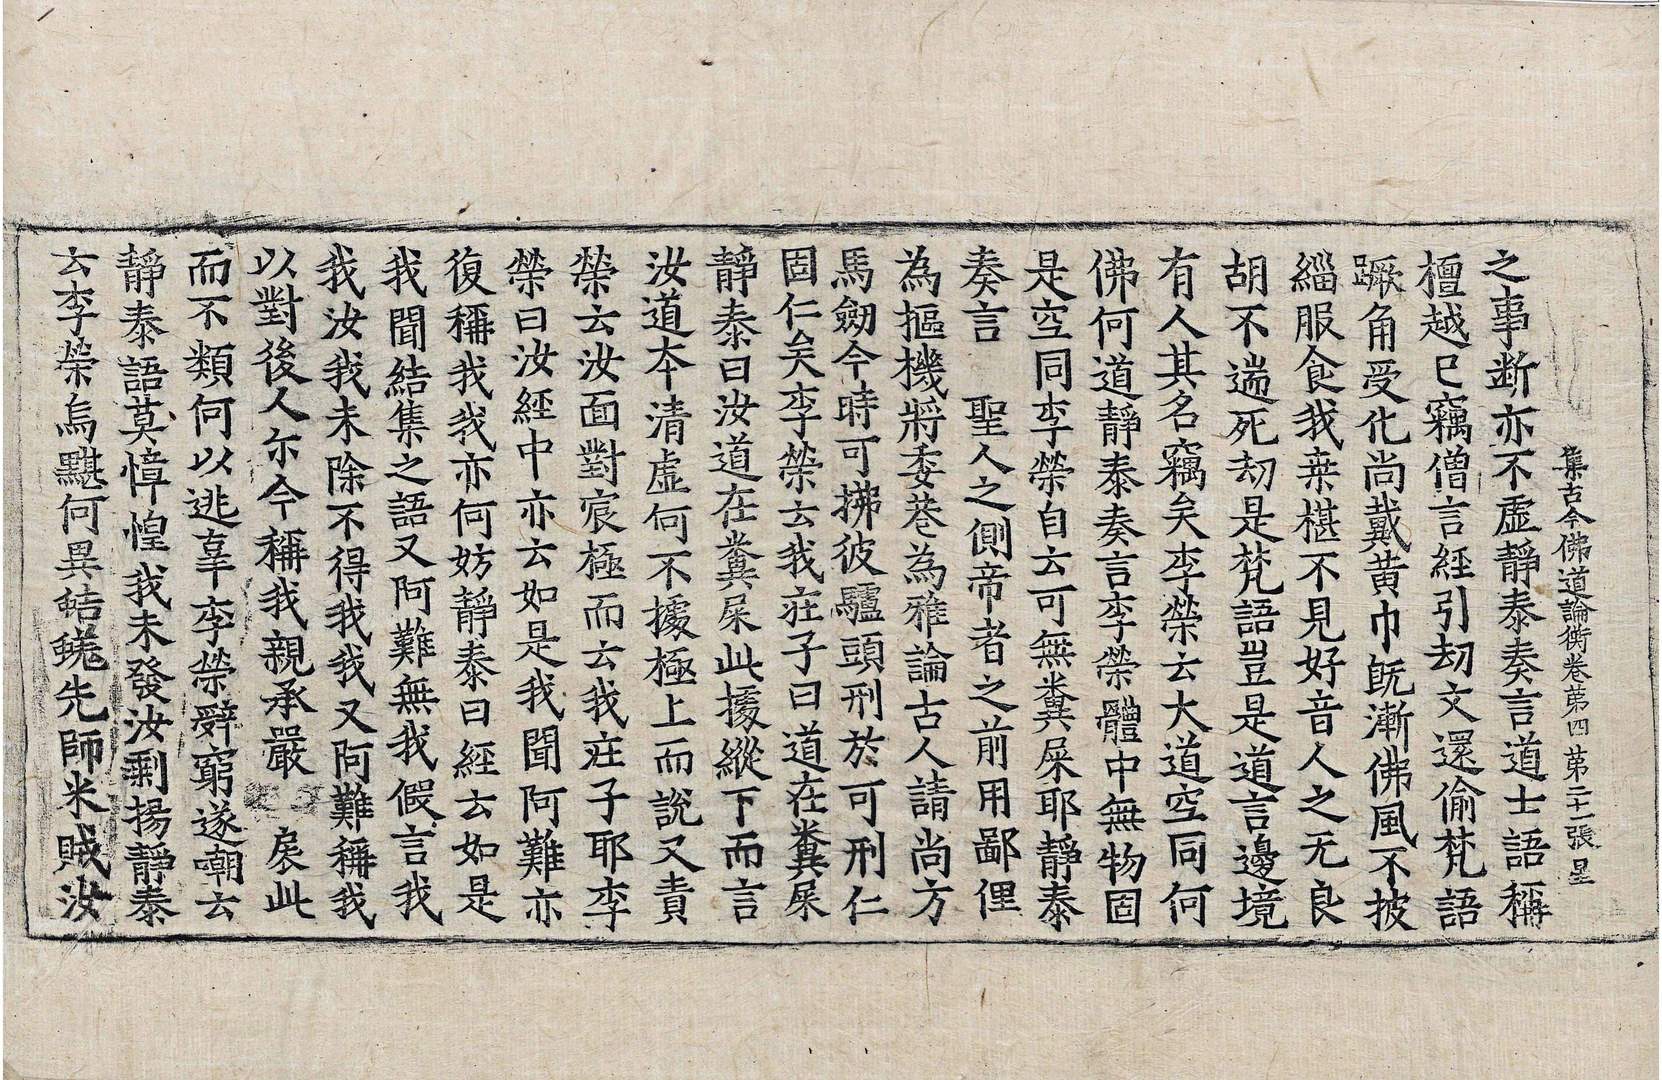 集古今佛道論衡卷苐四 苐二十一張 星
之事断亦不虛靜泰奏言道士語稱
檀越已竊僧言經引刧文還偷梵語
蹶角受化尚戴黄巾旣漸佛風不披
緇服食我桒椹不見好音人之无良
胡不遄死刧是梵語豈是道言邊境
有人其名竊矣李榮云大道空同何
佛何道靜泰奏言李榮體中無物固
是空同李榮自云可無糞屎耶靜泰
奏言 聖人之側帝者之前用鄙俚
為摳機將委巷為雅論古人請尚方
馬劒今時可拂彼驢頭刑於可刑仁
固仁矣李榮云我莊子曰道在糞屎
靜泰曰汝道在糞屎此據縱下而言
汝道夲清虛何不據極上而說又責
榮云汝面對宸極而云我莊子耶李
榮曰汝經中亦云如是我聞阿難亦
復稱我我亦何妨靜泰曰經云如是
我聞結集之語又阿難無我假言我
我汝我未除不得我我又阿難稱我
以對後人尒今稱我親承嚴 扆此
而不類何以逃辜李榮辤窮遂嘲云
靜泰語莫悼惶我未發汝剩揚靜泰
云李榮烏黮何異蛣蜣先師米賊汝